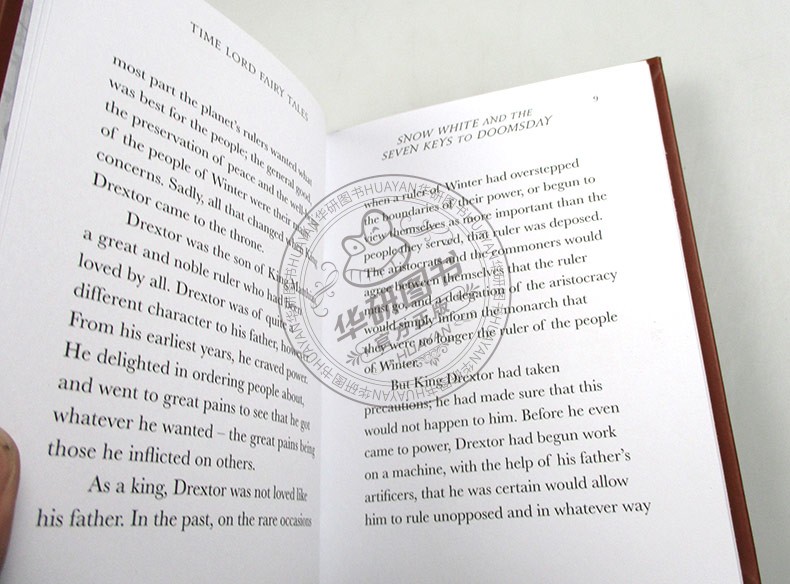 TIME LORD FAIRY TALES
most part the planet's rulers wanted what
was best for the people; the general good,
the preservation of peace and the well-
of the people of Winter were their main
concerns. Sadly, all that changed when King
Drextor came to the throne.
Drextor was the son of King
a great and noble ruler who had been
loved by all. Drextor was of quite a
different character to his father, however.
From his earliest years, he craved power.
He delighted in ordering people about,
and went to great pains to see that he got
whatever he wanted – the great pains being
those he inflicted on others.
As a king, Drextor was not loved like
his father. In the past, on the rare occasions
9
SNOW WHITE AND THE
SEVEN KEYS TO DOOMSDAY
when a ruler of Winter had overstepped
the boundaries of their power, or begun to
view themselves as more important than the
people they served, that ruler was deposed.
The aristocrats and the commoners would
agree between themselves that the ruler
must go, and a delegation of the aristocracy
would simply inform the monarch that
they were no longer the ruler of the people
of Winter.
But King Drextor had taken
precautions; he had made sure that this
would not happen to him. Before he even
came to power, Drextor had begun work
on a machine, with the help of his father's
artificers, that he was certain would allow
him to rule unopposed and in whatever way
华研图书HUAYAN华研图书HUAYAN华研图书HUAYAN华研图书HUAYAN
华研图书
官方正版
HUAYAN